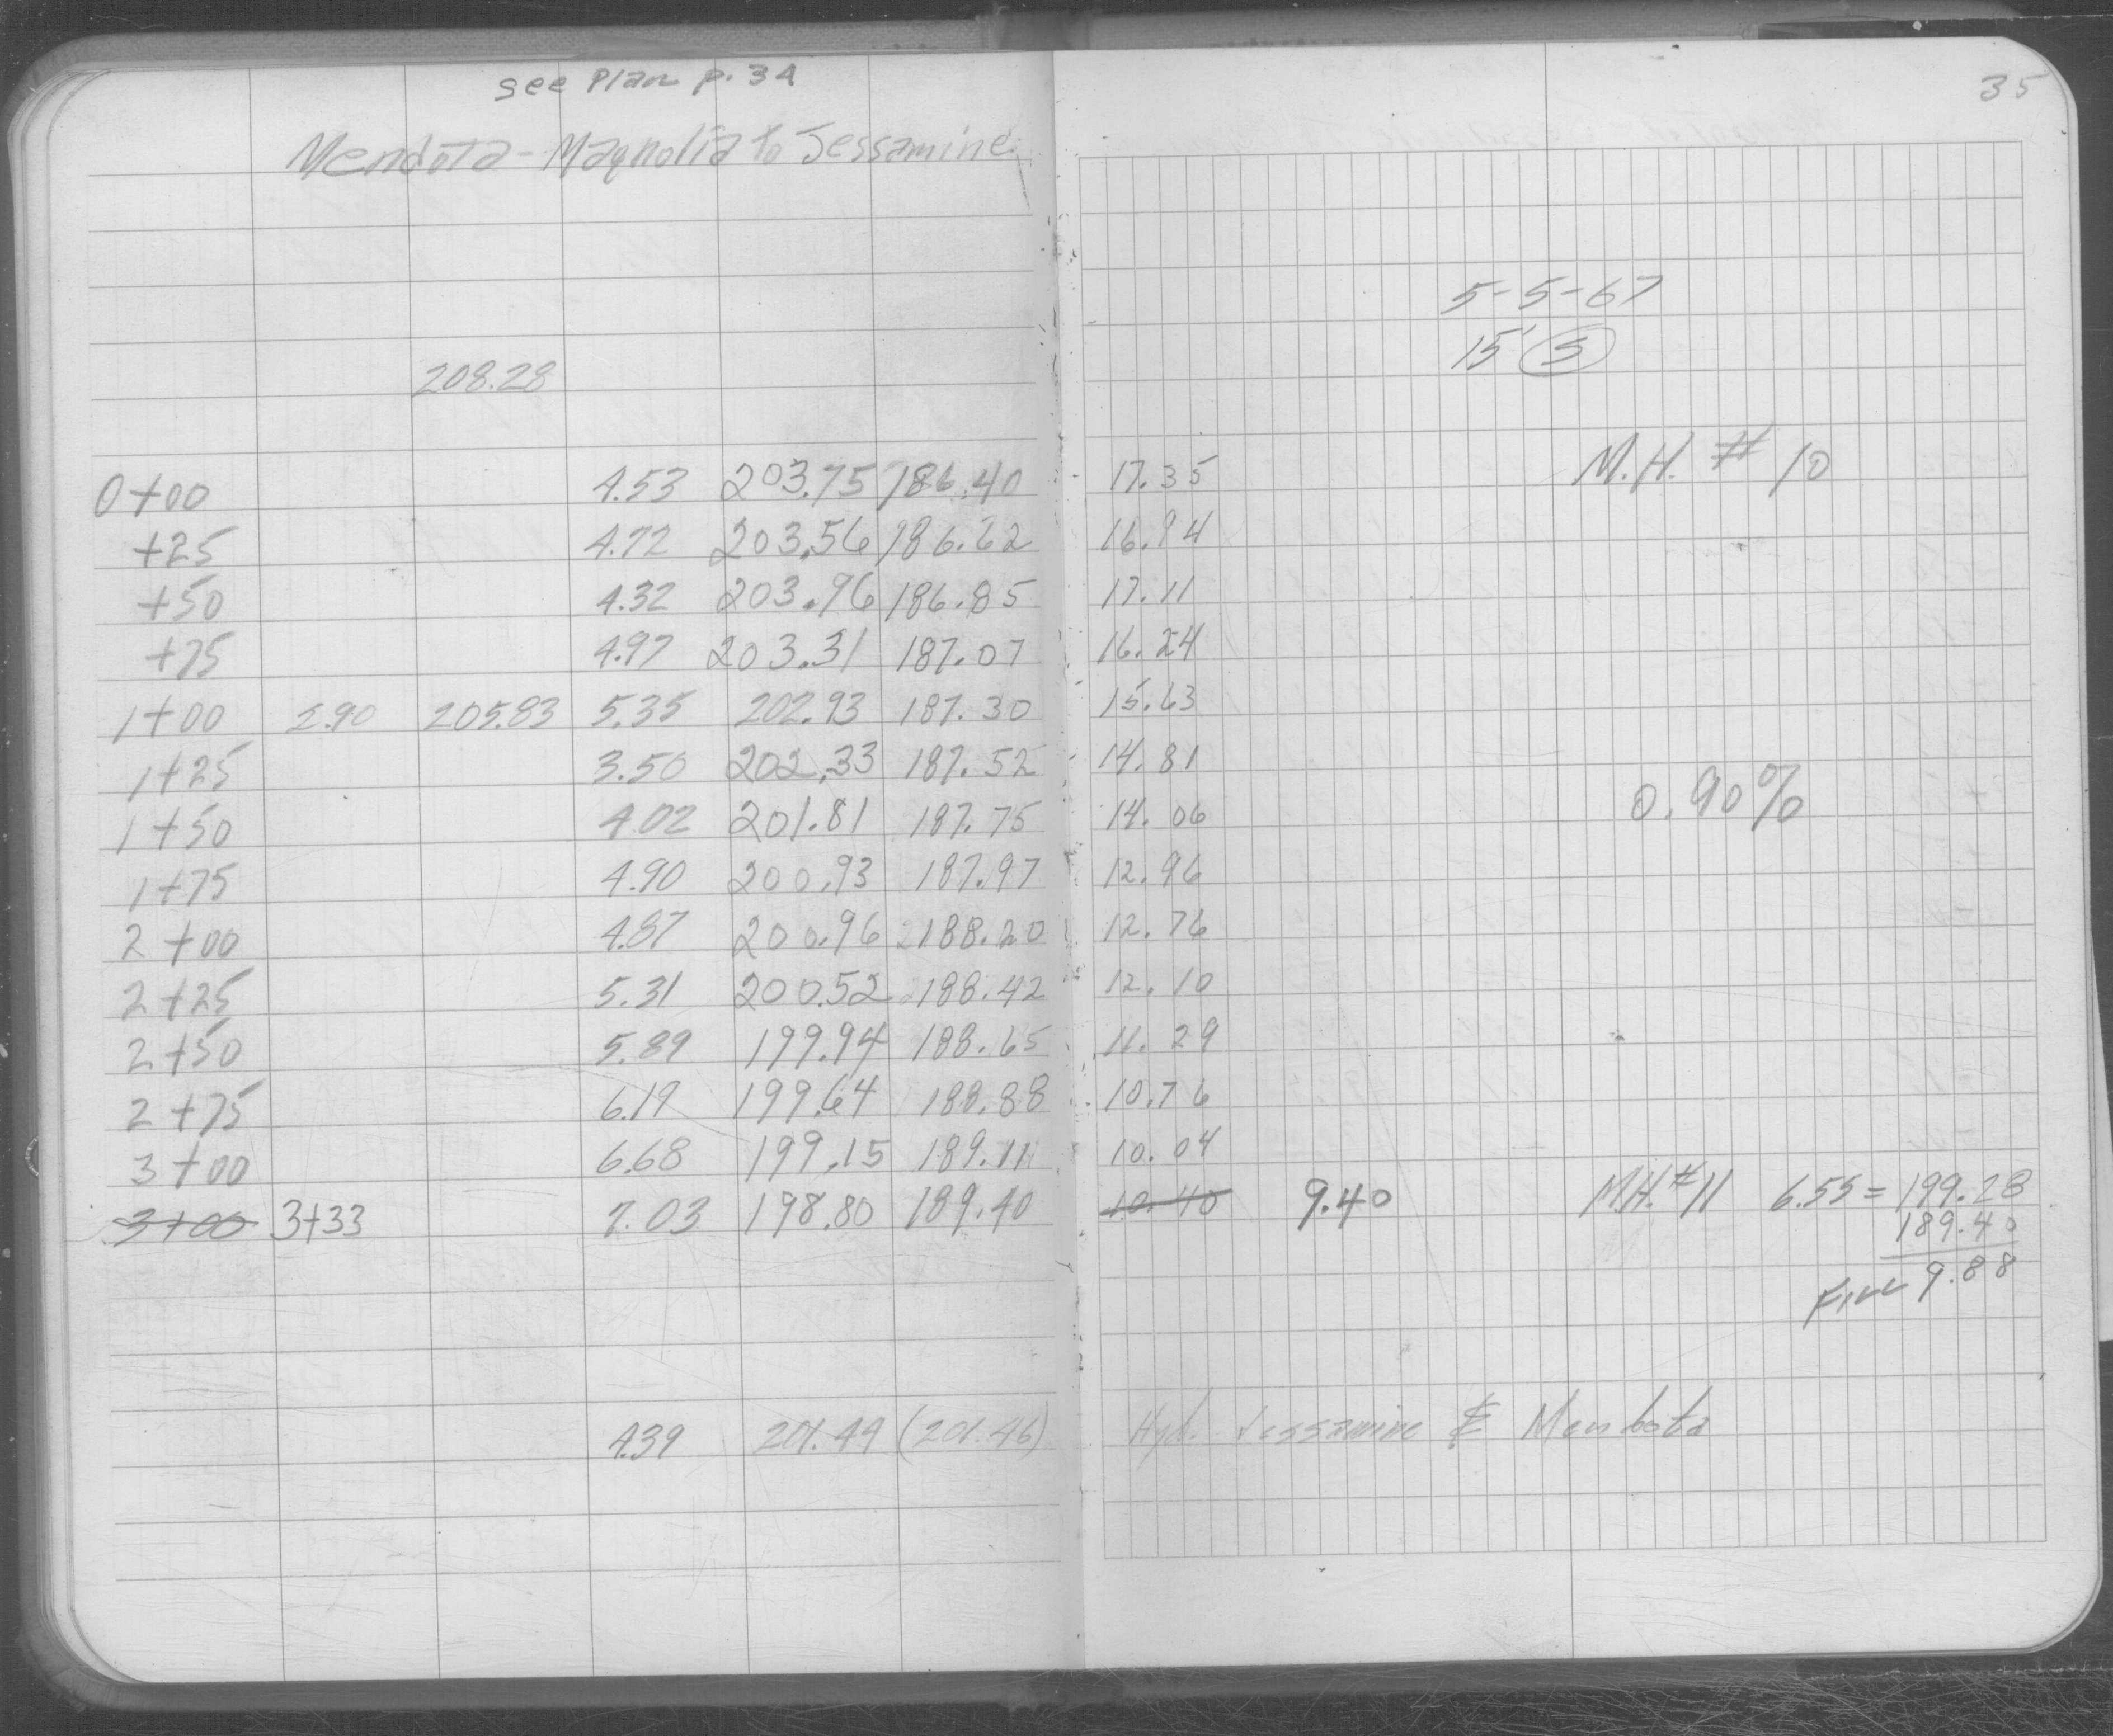 see Plan p. 34
35
Mendota - Magnolia to Jessamine
5-5-67
15' S
208.28
0+00 4.53 203.75 186.40 17.35 M.H. # 10
+25 4.72 203.56 186.62 16.94
+50 4.32 203.96 186.85 17.11
+75 4.97 203.31 187.07 16.24
1+00 2.90 205.83 5.35 202.93 187.30 15.63
1+25 3.50 202.33 187.52 14.81
1+50 4.02 201.81 187.75 14.06 0.90%
1+75 4.90 200.93 187.97 12.96
2+00 4.87 200.96 188.20 12.76
2+25 5.31 200.52 188.42 12.10
2+50 5.89 199.94 188.65 11.29
2+75 6.19 199.64 188.88 10.76
3+00 6.68 199.15 189.11 10.04
3+00 3+33 7.03 198.80 189.40 10.40 9.40 M.H.# 11 6.55 = 199.28
189.40
Fill 9.88
4.39 201.44 (201.46) Hyd. Jessamine & Mendota